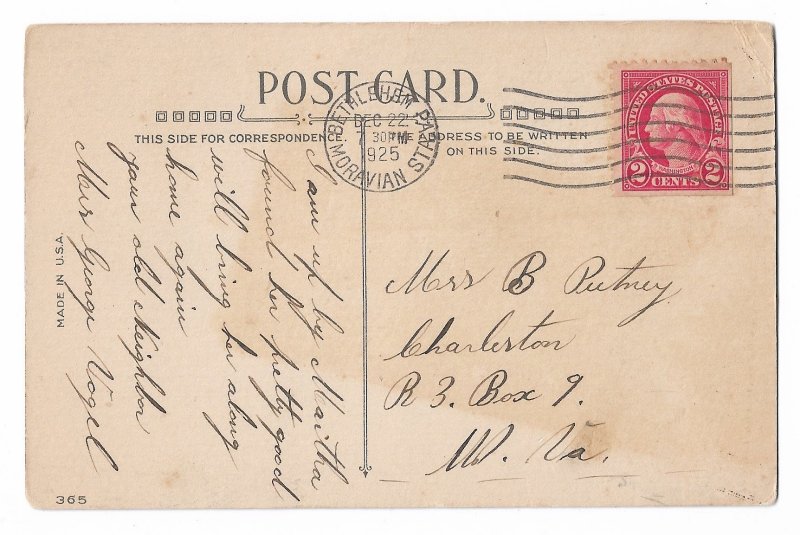 POST CARD.
THIS SIDE FOR CORRESPONDENCE. THE ADDRESS TO BE WRITTEN
ON THIS SIDE.
BETHLEHEM PA.
DEC 22
7 30 PM
1925
MORAVIAN STA.
UNITED STATES POSTAGE
WASHINGTON
2 CENTS 2
I am up by Martha
found her pretty good
will bring her along
home again
your old Neighbor
Mrs George Vogel
Mrs B Putney
Charleston
R 3. Box 9.
W. Va.
MADE IN U.S.A.
365